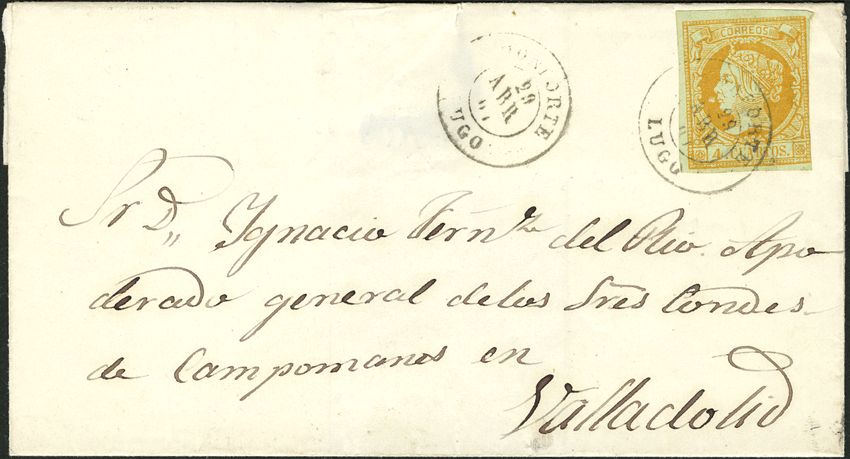 MONFORTE
29
ABR
61
LUGO
CORREOS
4 CUARTOS.
29
ABR
LUGO
Sr D,, Ignacio Fern^dz del Rio. Apo
derado general de los Sres Condes
de Campomanes en
Valladolid